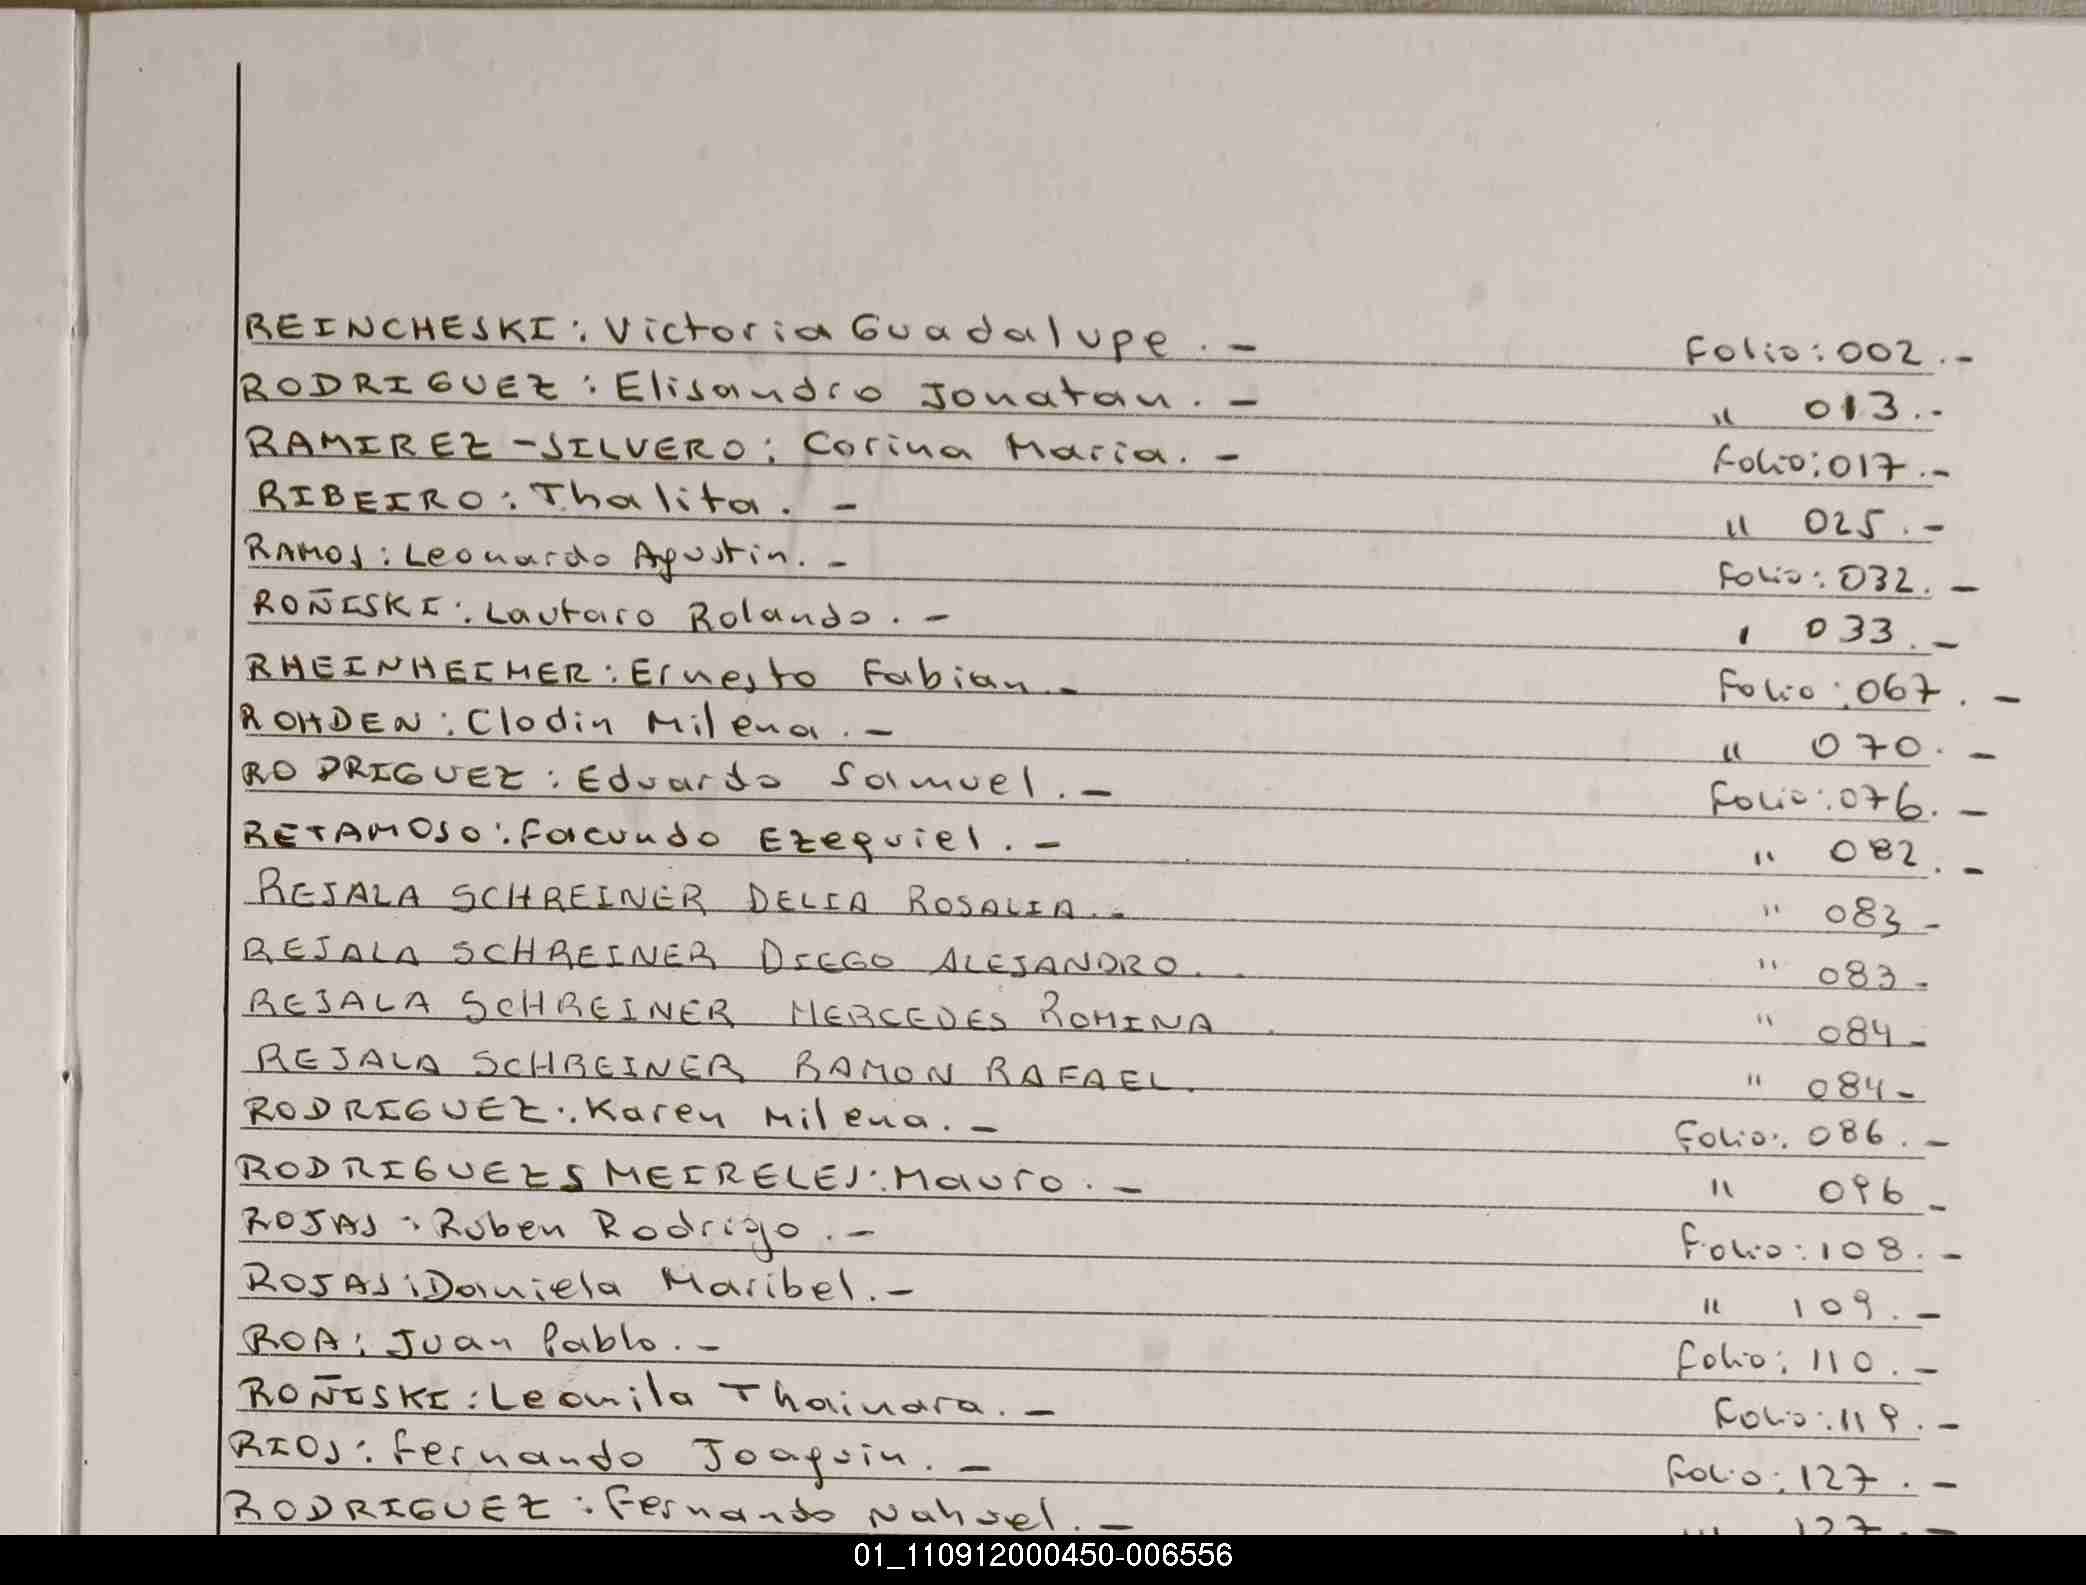 REINCHESKI: Victoria Guadalupe. - Folio: 002. -
RODRIGUEZ: Elisandro Jonatan. - " 013. -
RAMIREZ - SILVERO: Corina Maria. - Folio: 017. -
RIBEIRO: Thalita. - " 025. -
RAMOS: Leonardo Agustin. - Folio: 032. -
ROÑISKI: Lautaro Rolando. - " 033. -
RHEINHEIMER: Ernesto Fabian - Folio: 067. -
ROHDEN: Clodin Milena. - " 070. -
RODRIGUEZ: Eduardo Samuel. - Folio: 076. -
RETAMOSO: Facundo Ezequiel. - " 082. -
REJALA SCHREINER DELIA ROSALIA. - " 083 -
REJALA SCHREINER DIEGO ALEJANDRO. " 083 -
REJALA SCHREINER MERCEDES ROMINA. " 084 -
REJALA SCHREINER RAMON RAFAEL. " 084 -
RODRIGUEZ: Karen Milena. - Folio: 086. -
RODRIGUEZS MEIRELES: Mauro. - " 096 -
ROJAS: Ruben Rodrigo. - Folio: 108. -
ROJAS: Daniela Maribel. - " 109. -
ROA: Juan Pablo. - Folio: 110. -
ROÑISKI: Leonila Thainara. - Folio: 119. -
RIOS: Fernando Joaquin. - Folio: 127. -
RODRIGUEZ: Fernando Nahuel. - " 127. -
01_110912000450-006556